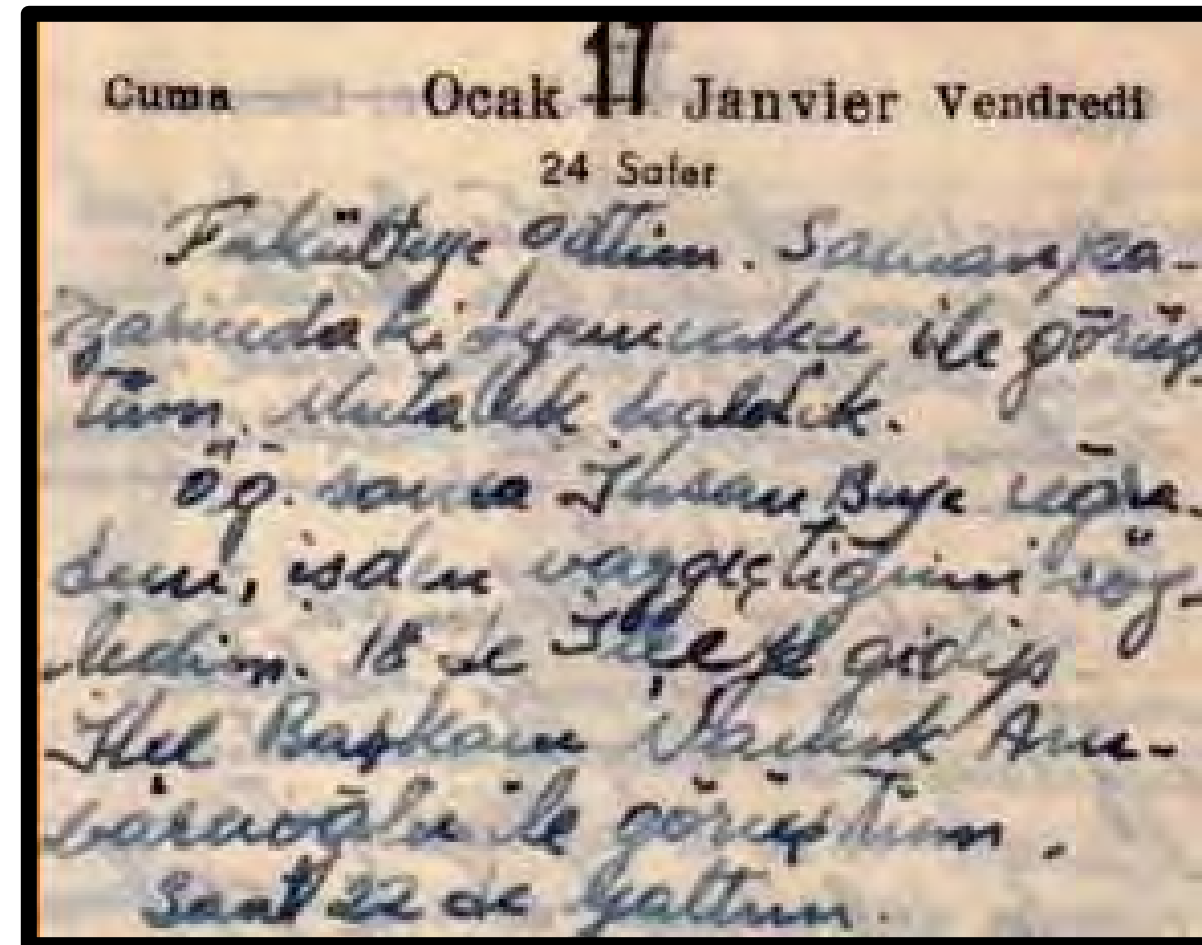 Cuma Ocak 17 Janvier Vendredi
24 Safer
Fakülteye gittim. Samanpa-
zarındaki ile görüş-
tüm. Mutabık kaldık.
Öğ. sonra İhsan Beye uğra-
dım, işden vazgeçtiğimi söy-
ledim. 18 de İlçeye gidip
İlçe Başkanı
ile görüştüm.
Saat 22 de yattım.